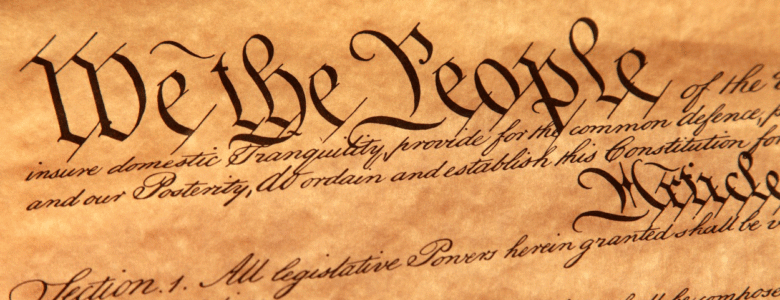 We the People of the
insure domestic Tranquility, provide for the common defence,
and our Posterity, do ordain and establish this Constitution for
Article
Section. 1. All legislative Powers herein granted shall be
compose